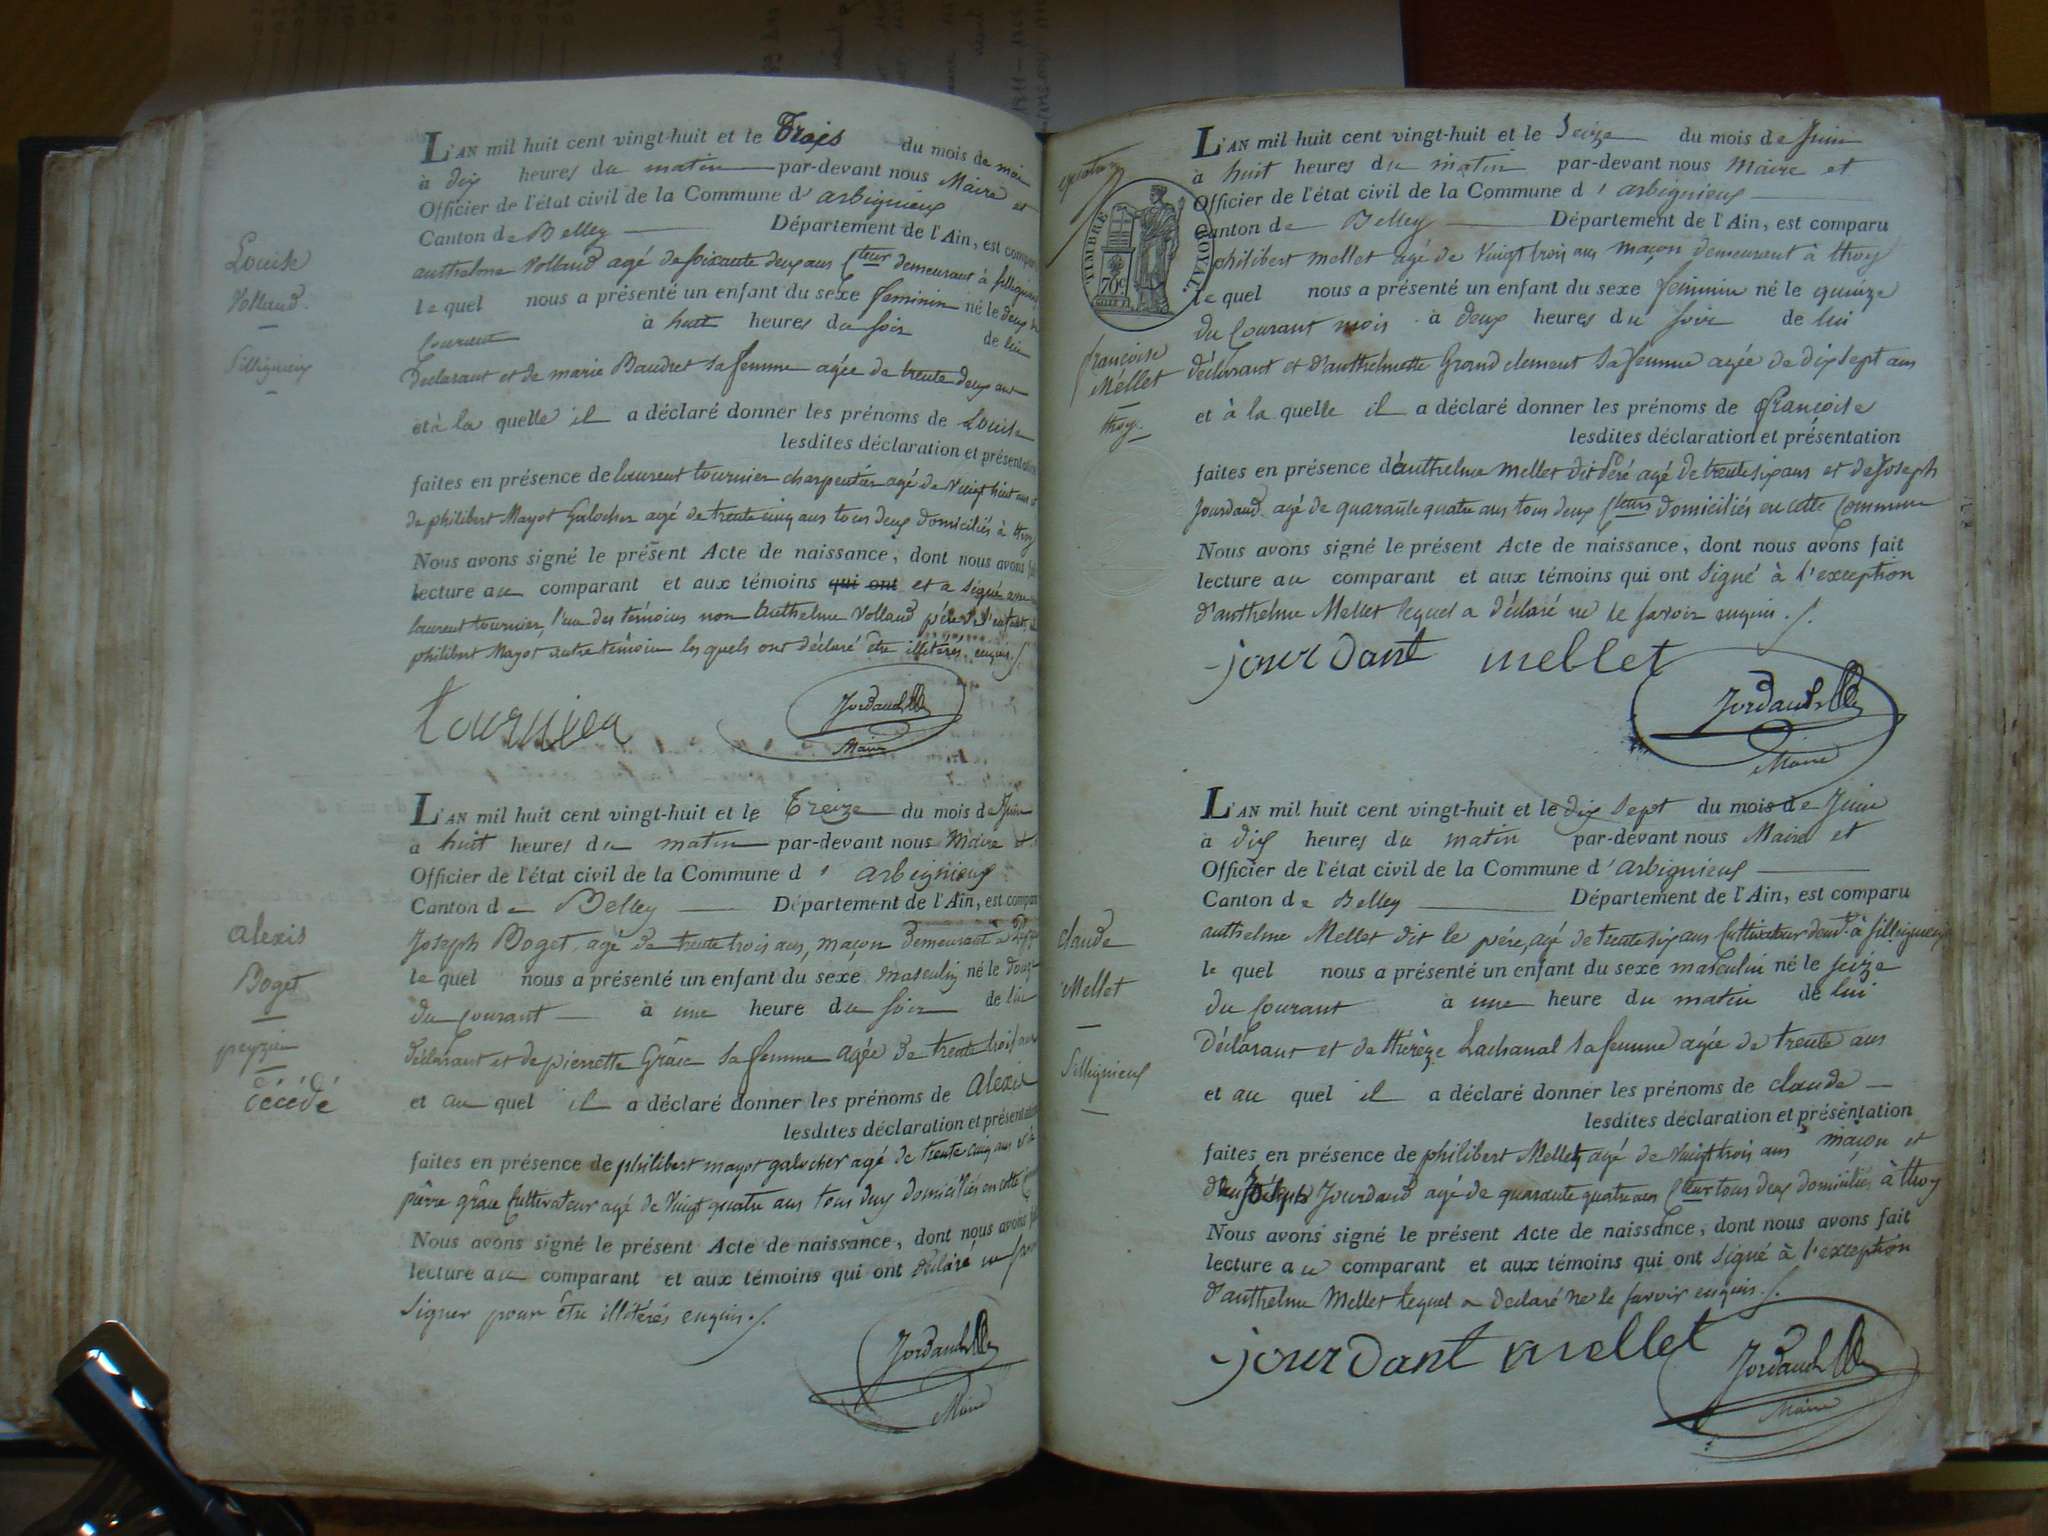 Louise
Volland
Sillignieux
L'AN mil huit cent vingt-huit et le Trois du mois de mai
à dix heures du matin par-devant nous Maire et
Officier de l'état civil de la Commune d'arbignieux
Canton de Belley Département de l'Ain, est compar
anthelme Volland agé de soixante deux ans cteur demeurant à silligni
le quel nous a présenté un enfant du sexe feminin né le deux
Courant à huit heures du soir de lui
Declarant et de marie Baudret sa femme agée de trente deux ans
et à la quelle il a déclaré donner les prénoms de Louise
lesdites déclaration et présentation
faites en présence de laurent tournier charpentier agé de Vingt huit ans et
de philibert Mayot Galocher agé de trente cinq ans tous deux domiciliés à thoy
Nous avons signé le présent Acte de naissance, dont nous avons fait
lecture au comparant et aux témoins qui ont et a signé avec
laurent tournier, l'un des témoins non anthelme Volland père de l'enfant, et
philibert Mayot autre témoin les quels ont déclaré être illiterés, enquis ./.
tournier
Jordand
Maire
alexis
Boget
peyzieu
décédé
L'AN mil huit cent vingt-huit et le Treize du mois de Juin
à huit heures du matin par-devant nous Maire et
Officier de l'état civil de la Commune d'arbignieux
Canton de Belley Département de l'Ain, est compar
Joseph Boget, agé de trente trois ans, maçon demeurant à
le quel nous a présenté un enfant du sexe masculin né le douze
du courant à une heure du soir de lui
déclarant et de pierrette Grâce sa femme agée de trente trois ans
et au quel il a déclaré donner les prénoms de alexis
lesdites déclaration et présentation
faites en présence de philibert mayot galocher agé de trente cinq ans et de
pierre grâce Cultivateur agé de Vingt quatre ans tous deux domiciliés en cette
Nous avons signé le présent Acte de naissance, dont nous avons fait
lecture au comparant et aux témoins qui ont déclaré ne savoir
signer pour être illitérés enquis ./.
Jordand
Maire
TIMBRE ROYAL
70c
françoise
Mellet
thoy
L'AN mil huit cent vingt-huit et le Seize du mois de Juin
à huit heures du matin par-devant nous Maire et
Officier de l'état civil de la Commune d'arbignieux
Canton de Belley Département de l'Ain, est comparu
philibert mellet agé de Vingt trois ans maçon demeurant à thoy
le quel nous a présenté un enfant du sexe feminin né le quinze
du Courant mois à deux heures du soir de lui
déclarant et d'anthelmette Grand clement sa femme agée de dix sept ans
et à la quelle il a déclaré donner les prénoms de françoise
lesdites déclaration et présentation
faites en présence d'anthelme mellet dit péré agé de trente six ans et de Joseph
Jourdand agé de quarante quatre ans tous deux cteurs domiciliés en cette Commune
Nous avons signé le présent Acte de naissance, dont nous avons fait
lecture au comparant et aux témoins qui ont signé à l'exception
d'anthelme Mellet lequel a déclaré ne le savoir enquis ./.
jourdant mellet
Jordand
Maire
claude
Mellet
Sillignieux
L'AN mil huit cent vingt-huit et le dix sept du mois de Juin
à dix heures du matin par-devant nous Maire et
Officier de l'état civil de la Commune d'arbignieux
Canton de Belley Département de l'Ain, est comparu
anthelme Mellet dit le pére, agé de trente six ans Cultivateur demt à sillignieux
le quel nous a présenté un enfant du sexe masculin né le seize
du Courant à une heure du matin de lui
Déclarant et de thérèze Lachanal sa femme agée de trente ans
et au quel il a déclaré donner les prénoms de claude
lesdites déclaration et présentation
faites en présence de philibert Mellet agé de Vingt trois ans maçon et
de Joseph Jourdand agé de quarante quatre ans cteur tous deux domiciliés à thoy
Nous avons signé le présent Acte de naissance, dont nous avons fait
lecture au comparant et aux témoins qui ont signé à l'exception
d'anthelme Mellet lequel a declaré ne le savoir enquis ./.
jourdant mellet
Jordand
Maire